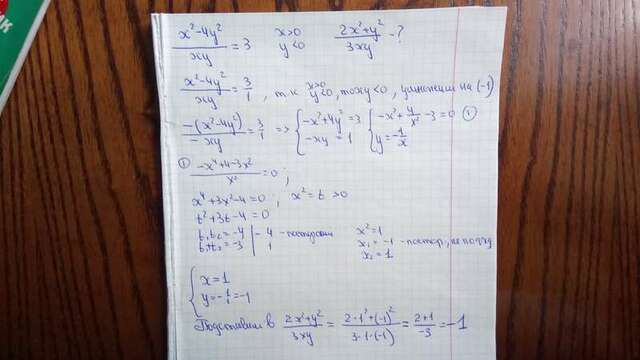 (x²-4y²)/(xy) = 3   x>0 y<0   (2x²+y²)/(3xy) - ?
(x²-4y²)/(xy) = 3/1 , т.к x>0 y<0, то xy<0, умножаем на (-1)
(-(x²-4y²))/(-xy) = 3/1 => { -x²+4y² = 3 -xy = 1 { -x²+4/x²-3=0 ① y=-1/x
① (-x⁴+4-3x²)/x² = 0 ;
x⁴+3x²-4=0 ; x²=t >0
t²+3t-4=0
t₁t₂=-4 | -4 - посторонн   x²=1
t₁+t₂=-3 | 1   x₁=-1 - постор., не подход
x₂=1
{ x=1
y=-1/1=-1
Подставим в (2x²+y²)/(3xy) = (2·1²+(-1)²)/(3·1·(-1)) = (2+1)/(-3) = -1